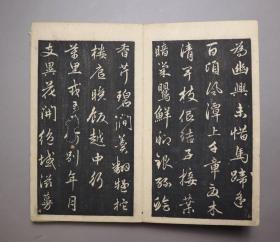 為幽興未惜馬蹄遥
百頃風潭上千章夏木
清卑枝低結子接葉
暗巢鶯鮮鯽銀絲鱠
香芹碧澗羹翻疑柁
樓底晚飯越中行
萬里戎王子何別年月
支異花開絶域滋蔓